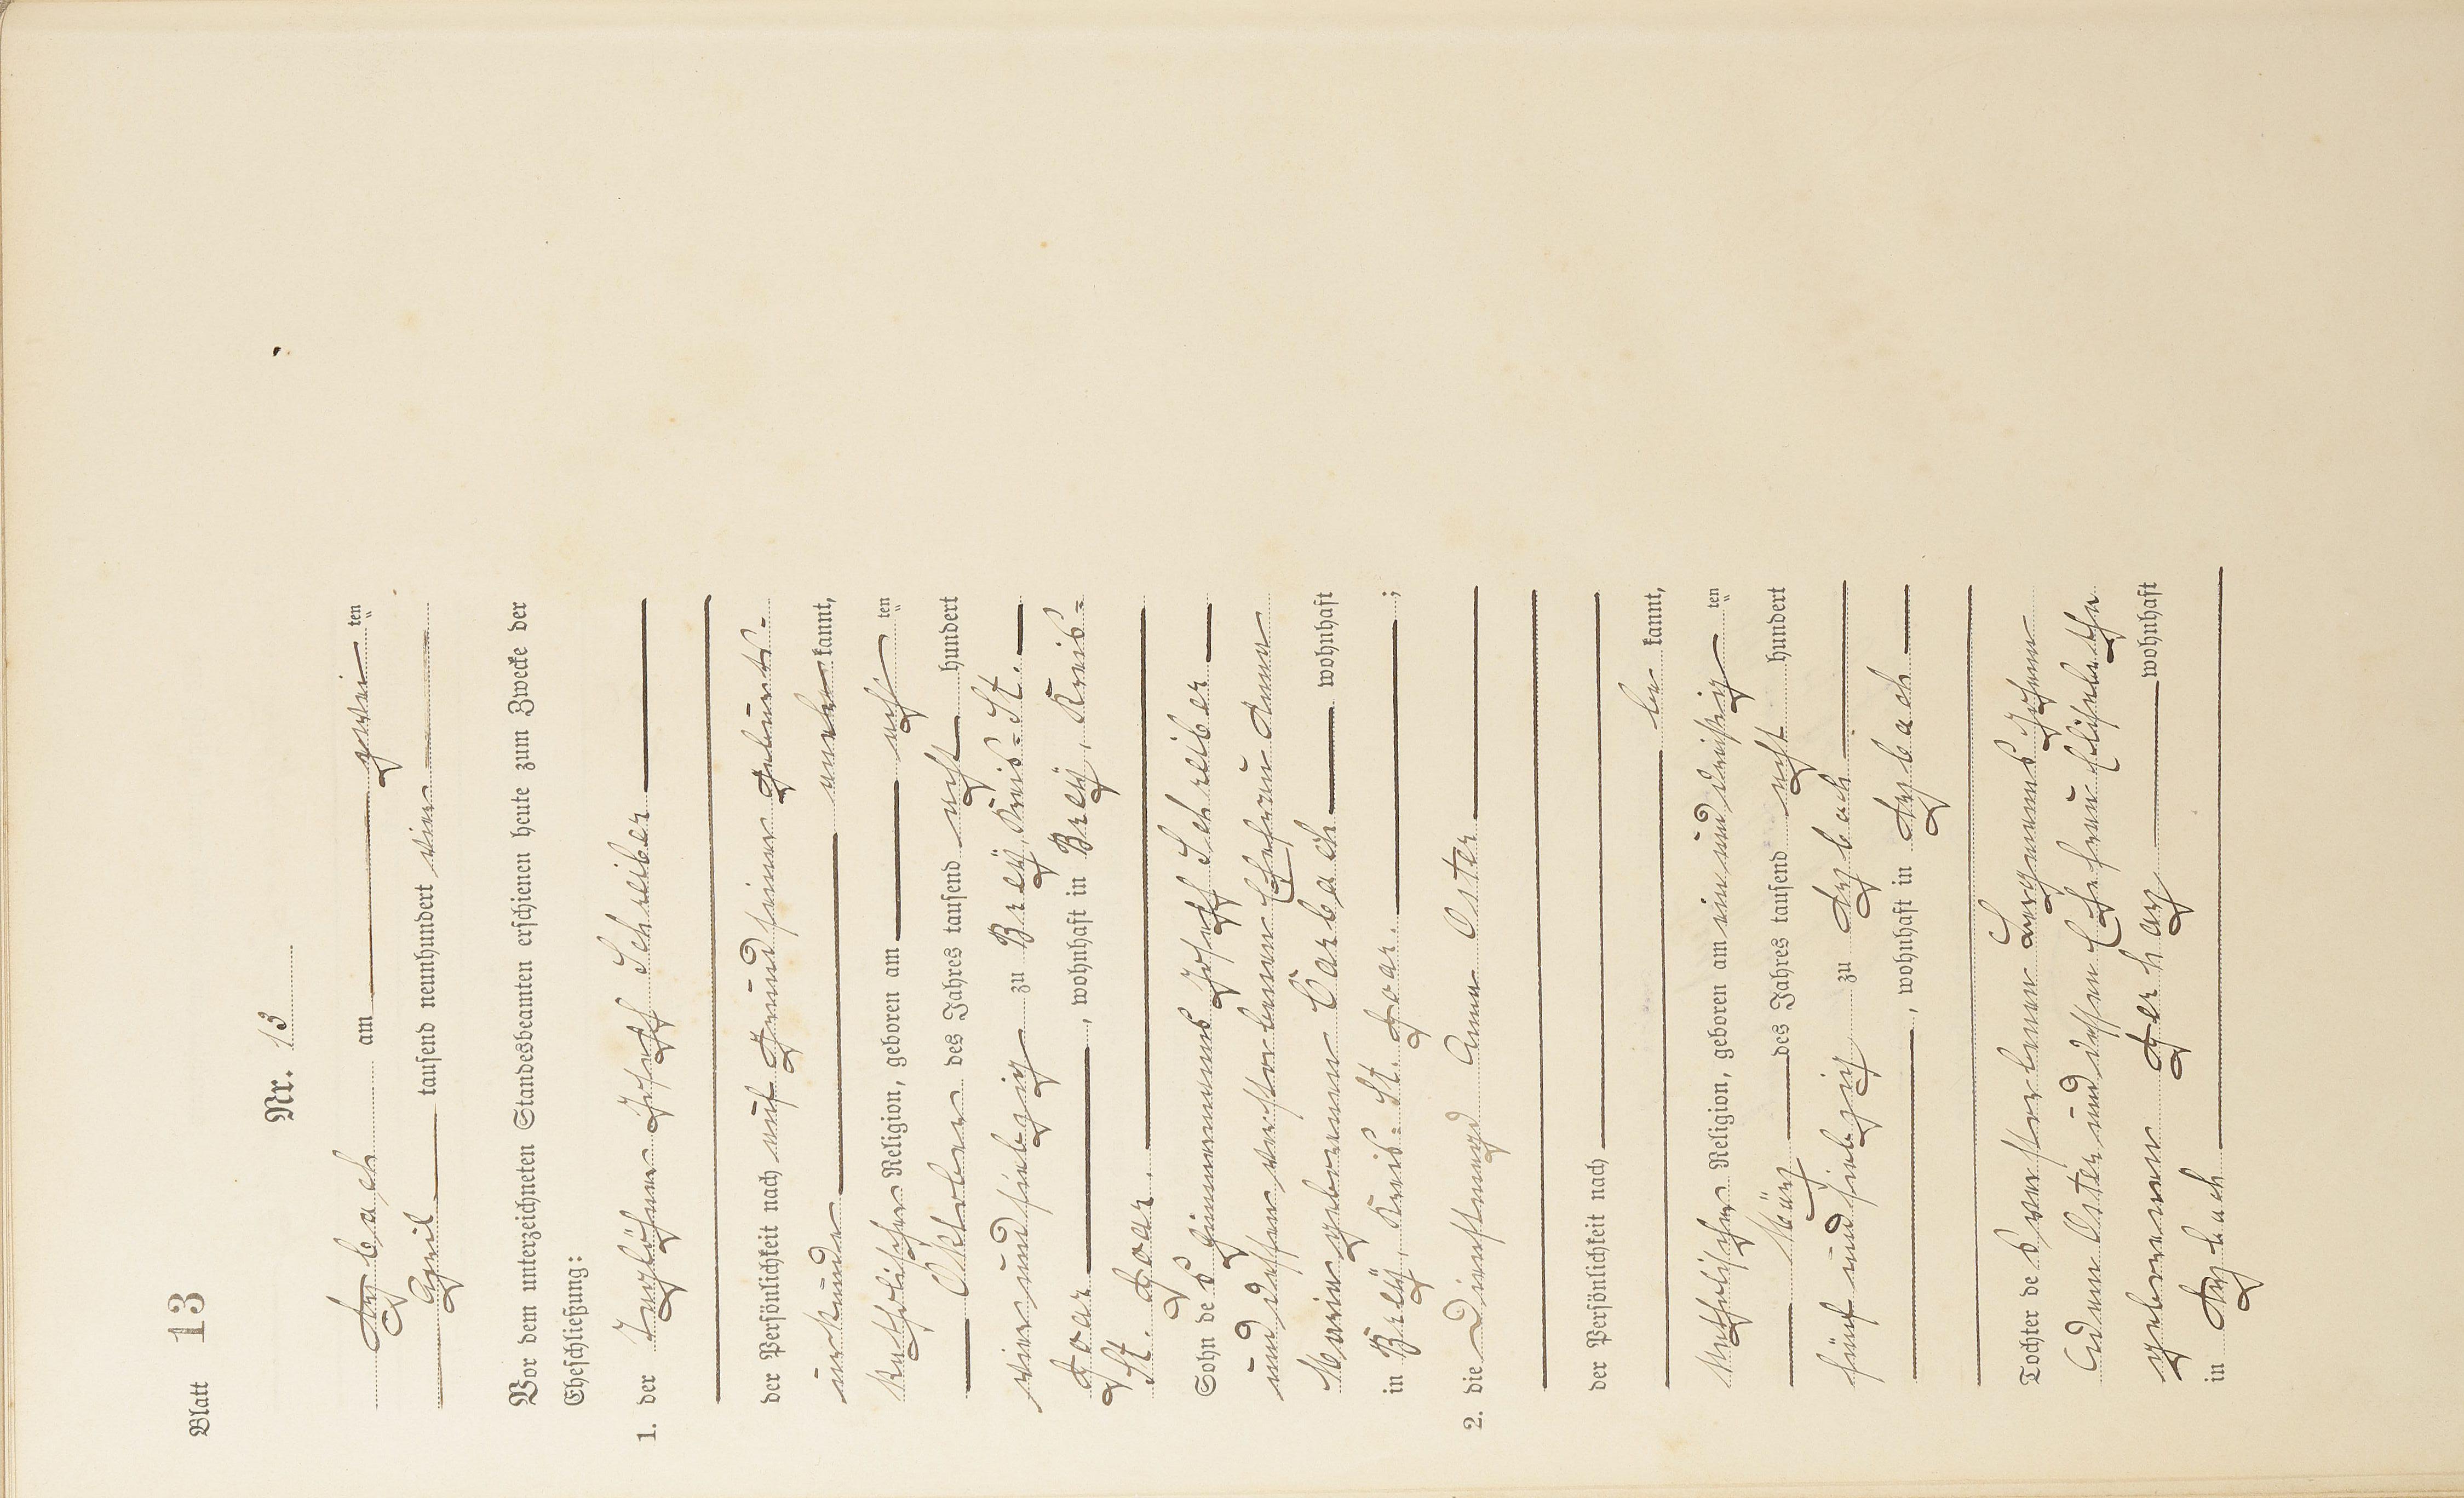 Blatt 13
Nr. 13
Arzbach am zwei ten
April tausend neunhundert vier
Vor dem unterzeichneten Standesbeamten erschienen heute zum Zwecke der
Eheschließung:
1. der Taglöhner Joseph Schreiber
der Persönlichkeit nach auf Grund seiner Geburts-
urkunde aner kannt,
katholischer Religion, geboren am acht ten
Oktober des Jahres tausend acht hundert
vier und siebzig zu Breÿ, Kreis St.
Goar, wohnhaft in Breÿ, Kreis
St. Goar.
Sohn des Zimmermanns Joseph Schreiber
und dessen verstorbenen Ehefrau Anna
Maria geborenen Carbach wohnhaft
in Breÿ, Kreis St. Goar. ;
2. die Dienstmagd Anna Oster
der Persönlichkeit nach
be kannt,
katholischer Religion, geboren am ein und dreißig ten
März des Jahres tausend acht hundert
fünf und siebzig zu Arzbach
, wohnhaft in Arzbach
Tochter des verstorbenen Bergmanns Johann
Adam Oster und dessen Ehefrau Elisabetha
geborenen Gerharz wohnhaft
in Arzbach